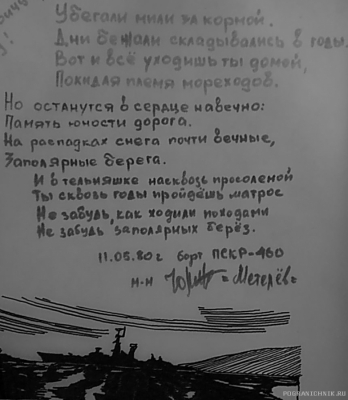 Убегали мили за кормой.
Дни бежали складывались в годы.
Вот и всё уходишь ты домой,
Покидая племя мореходов.
Но останутся в сердце навечно:
Память юности дорога.
На распадках снега почти вечные,
Заполярные берега.
И в тельняшке насквозь просоленой
Ты сквозь годы пройдёшь матрос
Не забудь, как ходили походами
Не забудь заполярных берёз.
11.05.80г борт ПСКР-460
м-н =Метелёв=
POGRANICHNIK.RU